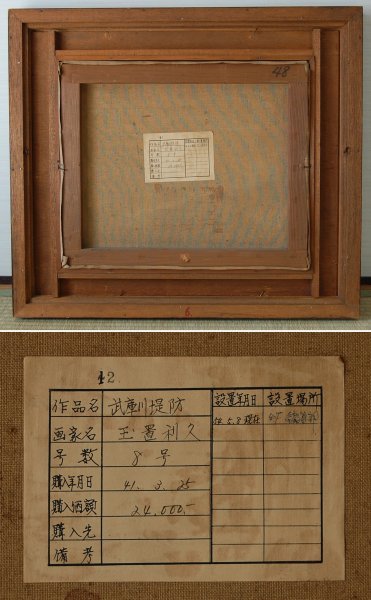 48
42
作品名 武庫川堤防
設置年月日 設置場所
画家名 玉置利久
号数 8号
購入年月日 41. 3. 25
購入価額 24,000.-
購入先
備考